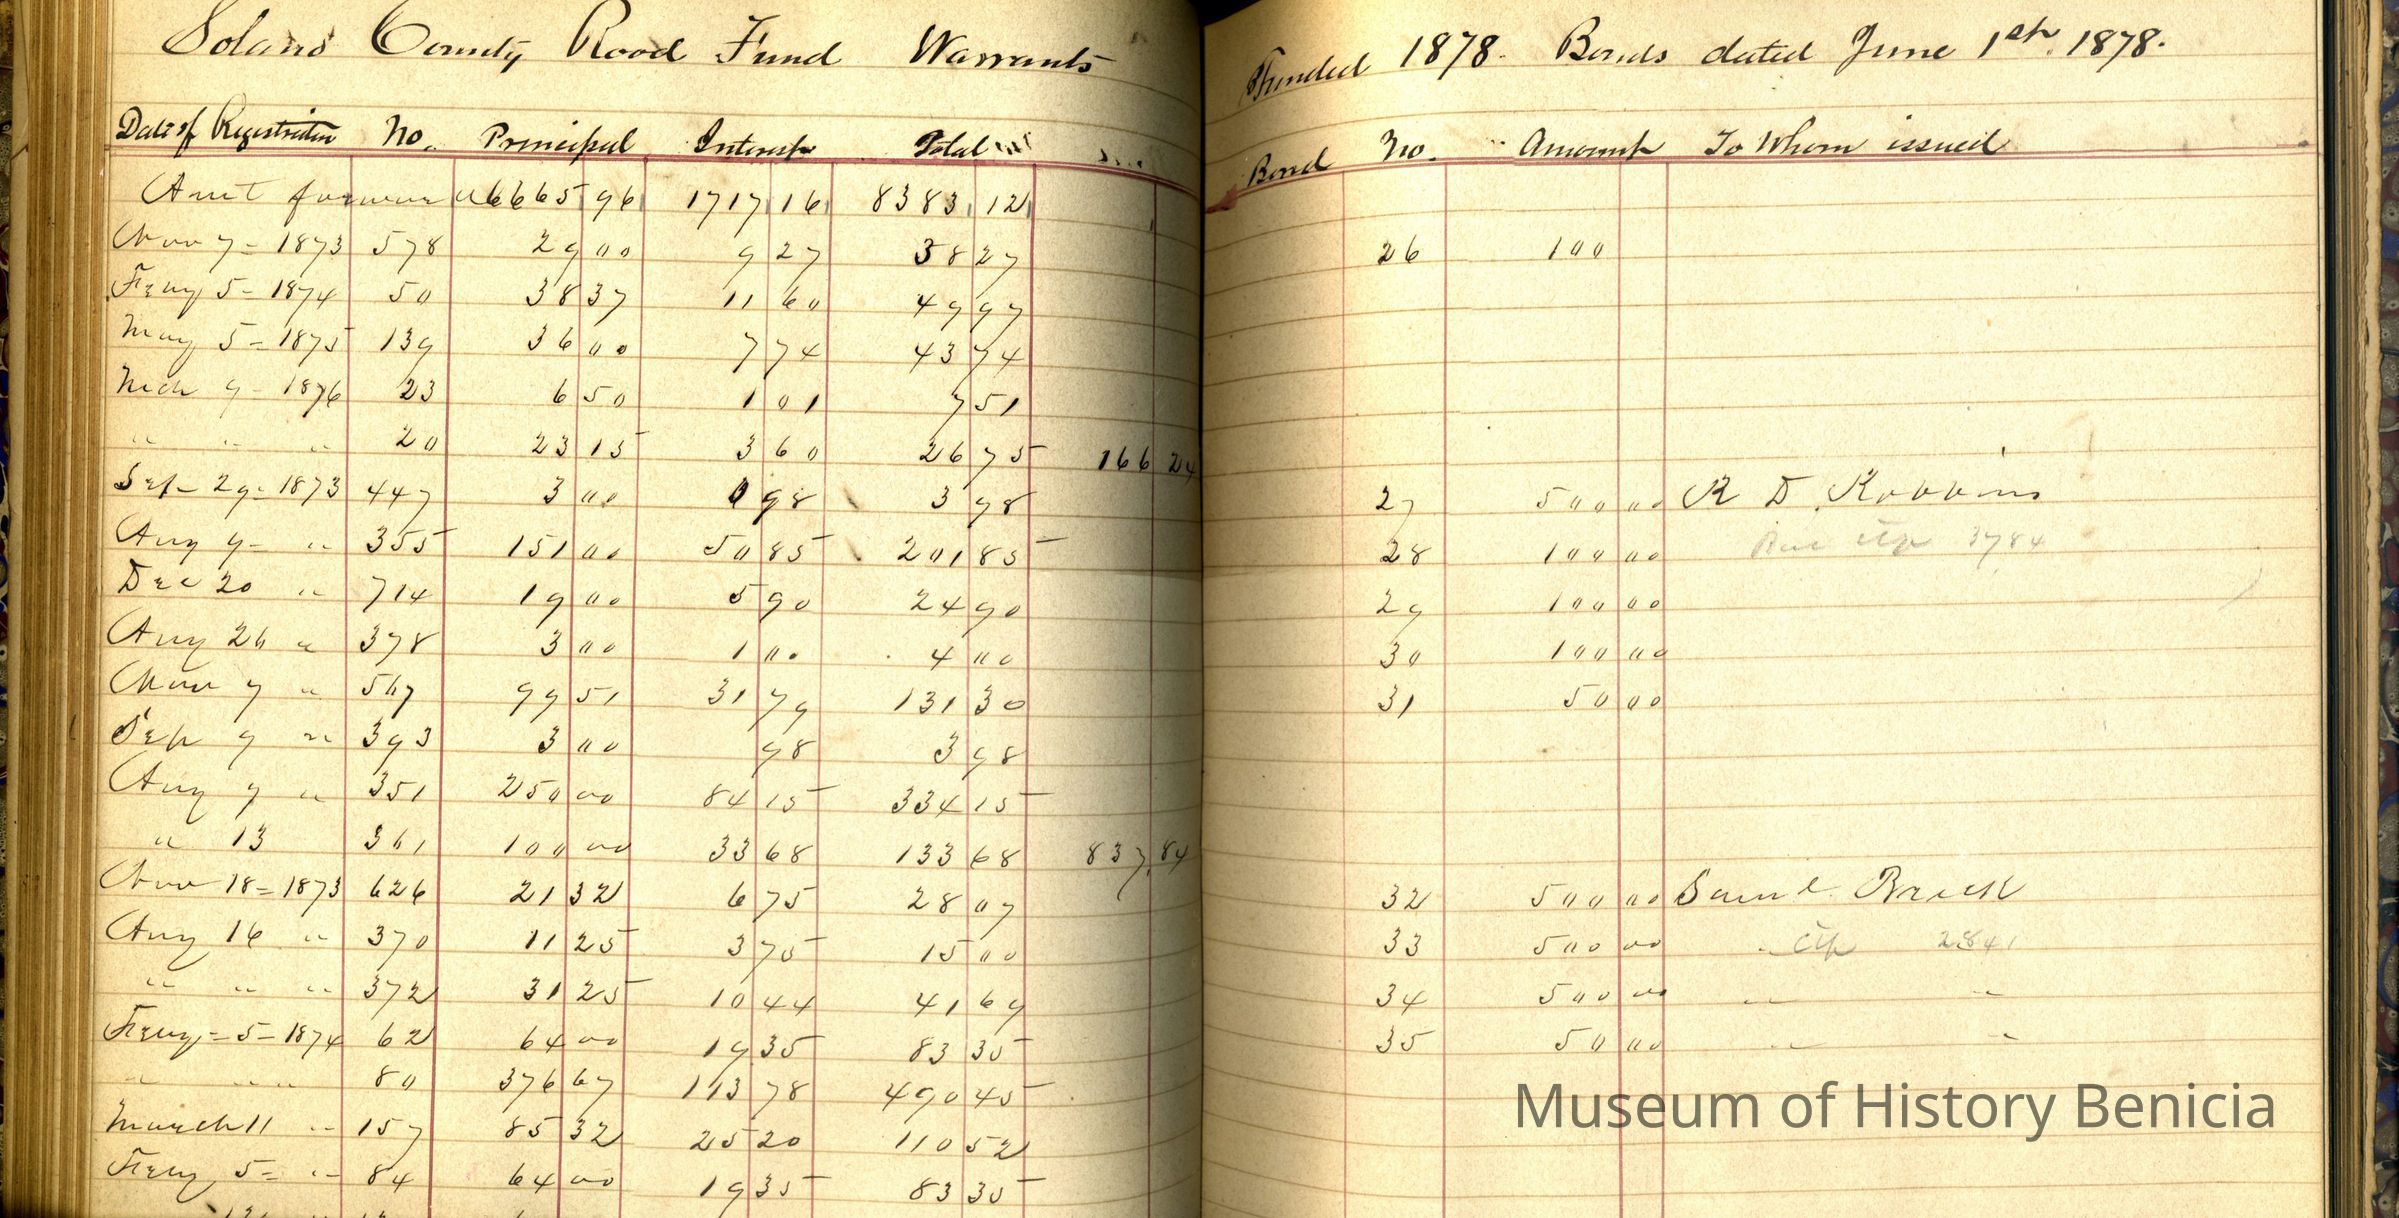 Solano County Road Fund Warrants Funded 1878. Bonds dated June 1st. 1878.
Date of Registration No. Principal Interest Total Bond No. Amount To Whom issued
Amt forward 6665 96 1717 16 8383 12
Nov 7 - 1873 578 29 00 9 27 38 27 26 100
Feuy 5 - 1874 50 38 37 11 60 49 97
May 5 - 1875 139 36 00 7 74 43 74
Mch 9 - 1876 23 6 50 1 01 7 51
" " " 20 23 15 3 60 26 75 166 24
Sep - 29 - 1873 447 3 00 0 98 3 98 27 500 00 R D Robbins
Aug 9 - " 355 151 00 50 85 201 85 28 100 00 3784
Dec 20 " 714 19 00 5 90 24 90 29 100 00
Aug 26 " 378 3 00 1 00 4 00 30 100 00
Nov 7 " 567 99 51 31 79 131 30 31 50 00
Sep 9 " 393 3 00 98 3 98
Aug 9 " 351 250 00 84 15 334 15
" 13 361 100 00 33 68 133 68 837.84
Nov 18 - 1873 626 21 32 6 75 28 07 32 500 00 Saml Brick
Aug 16 " 370 11 25 3 75 15 00 33 500 00 " 2841
" " " 372 31 25 10 44 41 69 34 500 00 " "
Feuy - 5 - 1874 62 64 00 19 35 83 35 35 50 00 " "
" " " 80 376 67 113 78 490 45
March 11 " 157 85 32 25 20 110 52
Feuy 5 - " 84 64 00 19 35 83 35
Museum of History Benicia